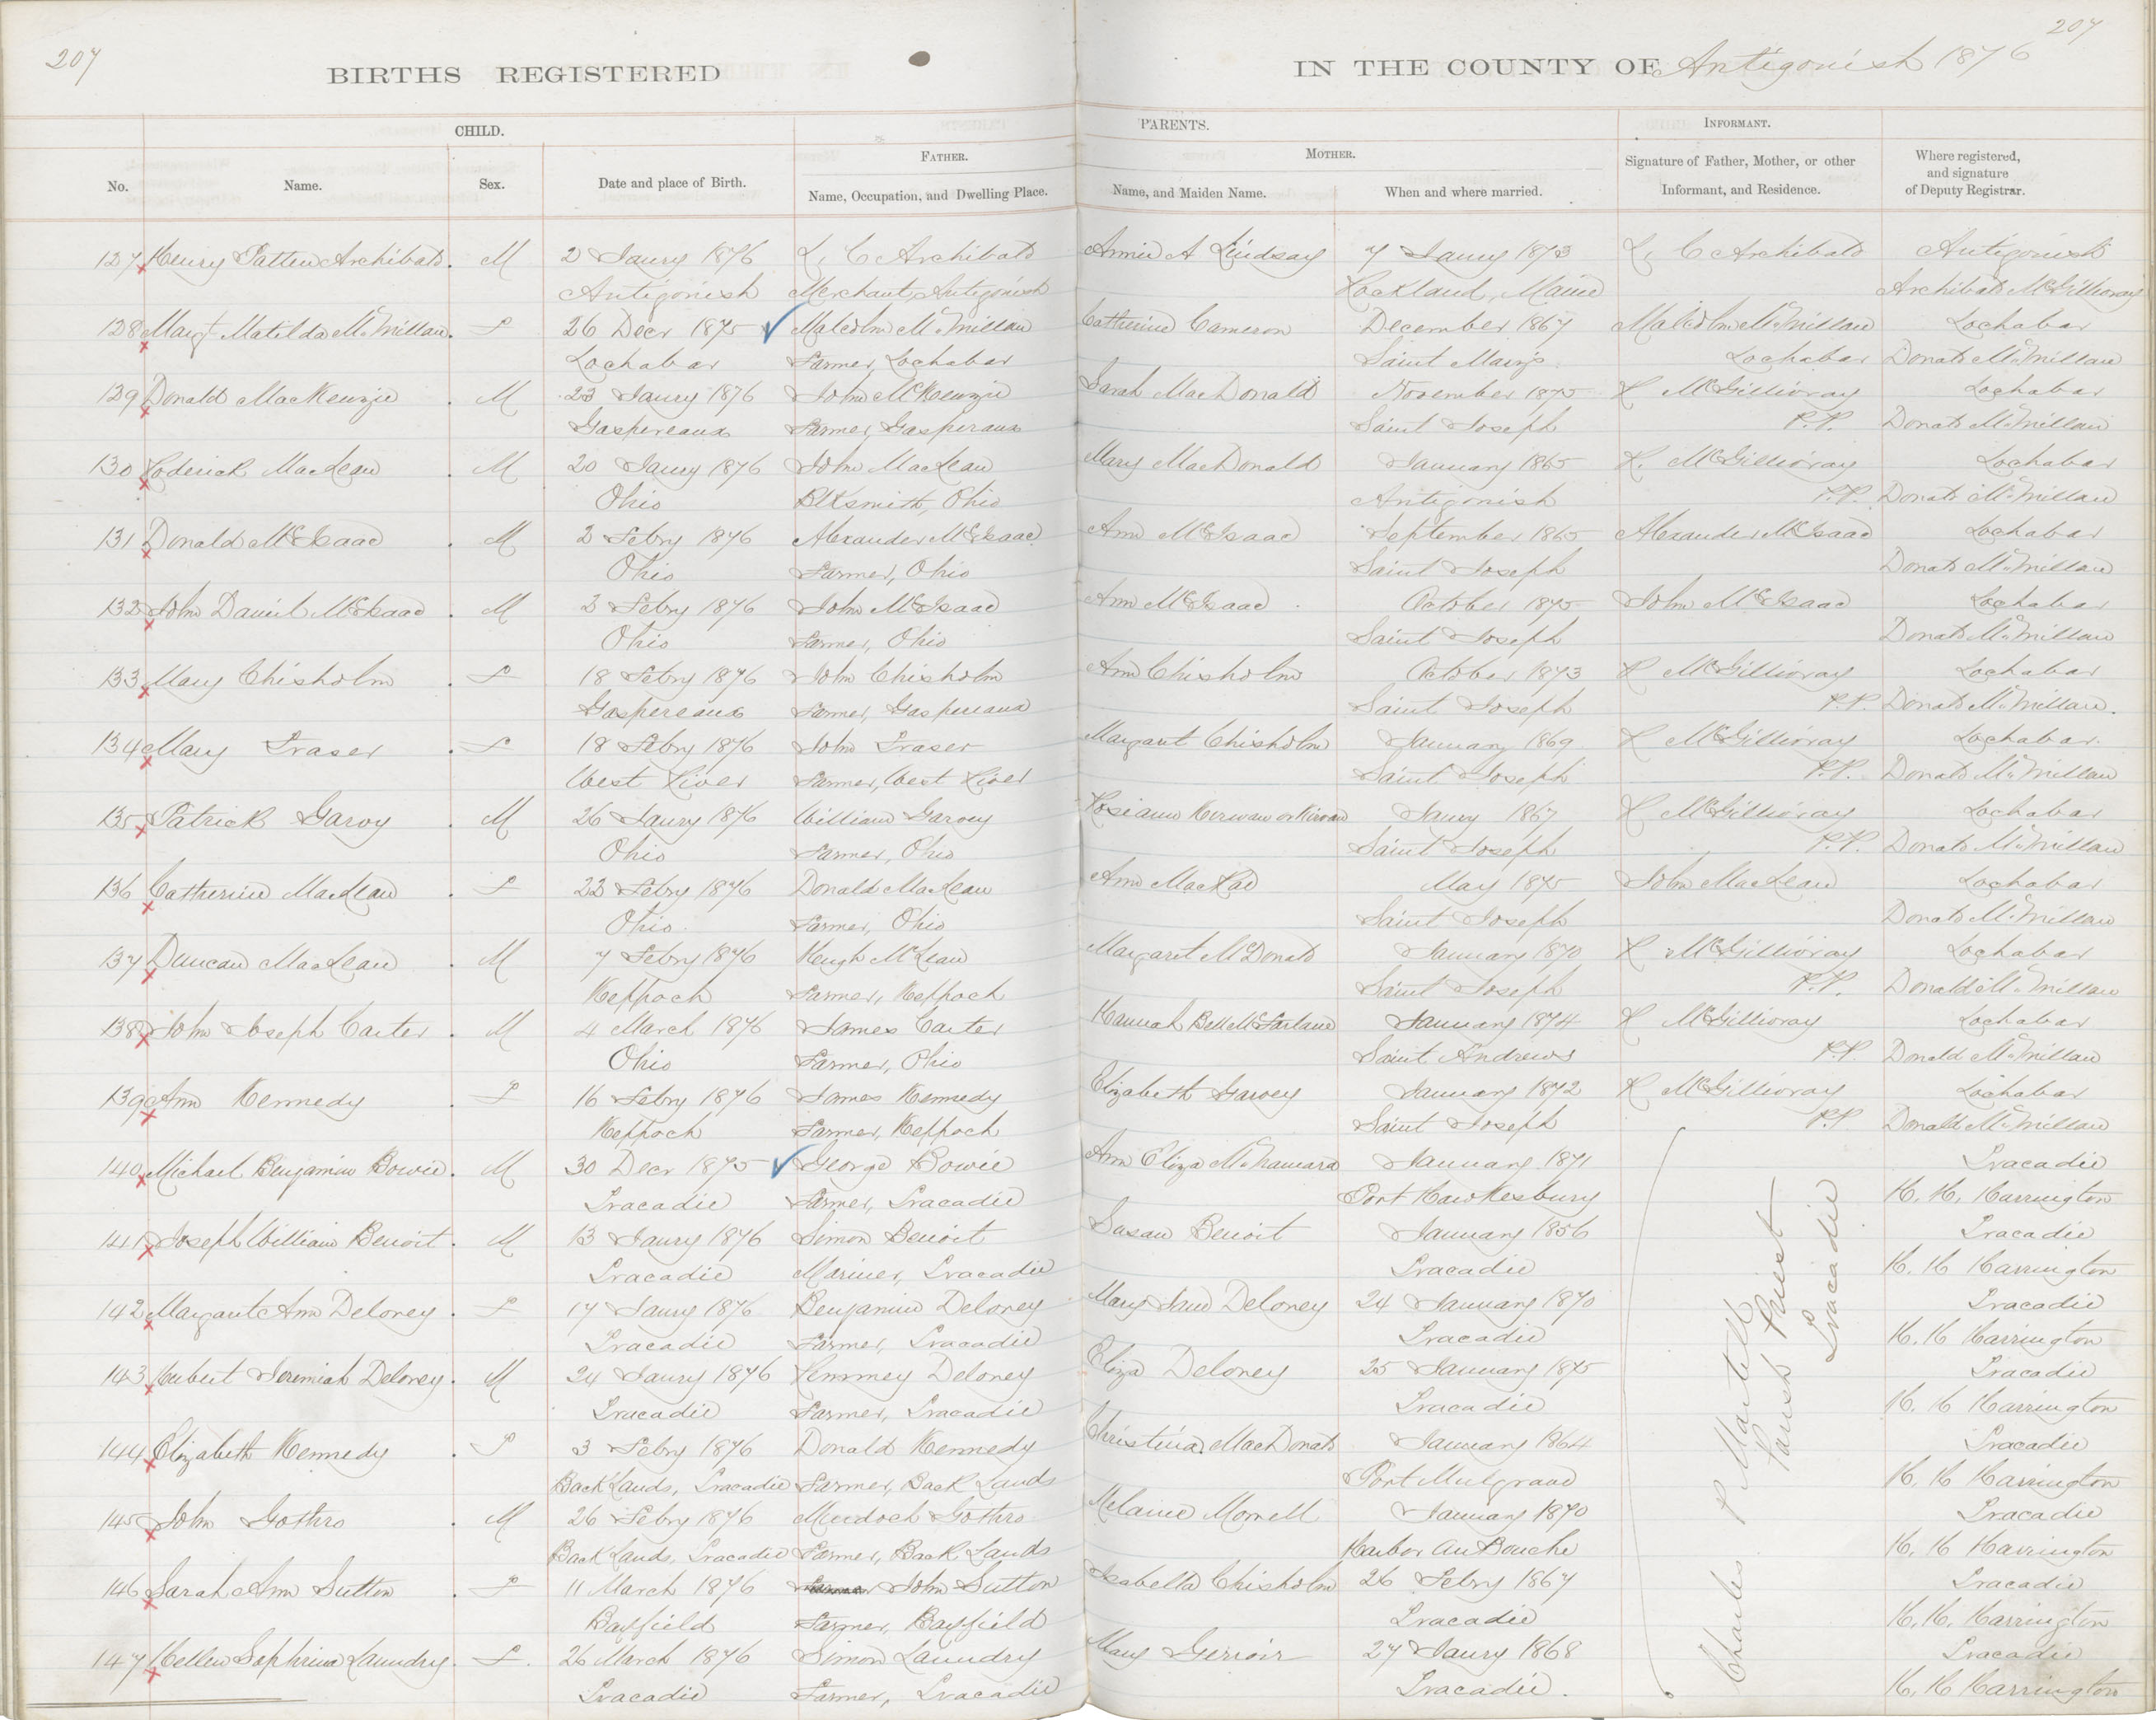 207
207
BIRTHS REGISTERED
IN THE COUNTY OF Antigonish 1876
CHILD.
PARENTS.
INFORMANT.
FATHER.
MOTHER.
No.
Name.
Sex.
Date and place of Birth.
Name, Occupation, and Dwelling Place.
Name, and Maiden Name.
When and where married.
Signature of Father, Mother, or other
Informant, and Residence.
Where registered,
and signature
of Deputy Registrar.
127 Henry Patten Archibald. M 2 Jaury 1876 L. C Archibald Annie A Lindsay 7 Jaury 1873 L. C Archibald Antigonish
Antigonish Merchant, Antigonish Rockland, Maine Archibald McGillivray
128 Mary Matilda McMillan. F 26 Decr 1875 Malcolm McMillan Catherine Cameron December 1867 Malcolm McMillan Lochabar
Lochabar Farmer, Lochabar Saint Mary's Lochabar Donald McMillan
129 Donald MacKenzie M 23 Jaury 1876 John McKenzie Sarah MacDonald November 1875 R McGillivray Lochabar
Gaspereaux Farmer, Gasperaux Saint Joseph P.P. Donald McMillan
130 Roderick MacLean M 20 Jaury 1876 John MacLean Mary MacDonald January 1865 R. McGillivray Lochabar
Ohio BlKsmith, Ohio Antigonish P.P. Donald McMillan
131 Donald McIsaac M 2 Febry 1876 Alexander McIsaac Ann McIsaac September 1865 Alexander McIsaac Lochabar
Ohio Farmer, Ohio Saint Joseph Donald McMillan
132 John Daniel McIsaac M 2 Febry 1876 John McIsaac Ann McIsaac October 1875 John McIsaac Lochabar
Ohio Farmer, Ohio Saint Joseph Donald McMillan
133 Mary Chisholm F 18 Febry 1876 John Chisholm Ann Chisholm October 1873 R McGillivray Lochabar
Gaspereaux Farmer, Gaspereaux Saint Joseph P.P. Donald McMillan.
134 Mary Fraser F 18 Febry 1876 John Fraser Margaret Chisholm January 1869 R McGillivray Lochabar.
West River Farmer, West River Saint Joseph P.P. Donald McMillan
135 Patrick Garvy M 26 Jaury 1876 William Garvey Rosiann Kerwan or Kirwan Jaury 1867 R McGillivray Lochabar
Ohio Farmer, Ohio Saint Joseph P.P. Donald McMillan
136 Catherine MacLean F 22 Febry 1876 Donald MacLean Ann MacRae May 1875 John MacLean Lochabar
Ohio Farmer, Ohio Saint Joseph Donald McMillan
137 Duncan MacLean M 7 Febry 1876 Hugh McLean Margaret McDonald January 1870 R McGillivray Lochabar
Keppoch Farmer, Keppoch Saint Joseph P.P. Donald McMillan
138 John Joseph Carter M 4 March 1876 James Carter Hannah Bell McFarlane January 1874 R McGillivray Lochabar
Ohio Farmer, Ohio Saint Andrews P.P. Donald McMillan
139 Ann Kennedy F 16 Febry 1876 James Kennedy Elizabeth Garvey January 1872 R McGillivray Lochabar
Keppoch Farmer, Keppoch Saint Joseph P.P Donald McMillan
140 Michael Benjamin Bowie. M 30 Decr 1875 George Bowie Ann Eliza McNamara January 1871 Tracadie
Tracadie Farmer, Tracadie Port Hawkesbury H. H. Harrington
141 Joseph William Benoit. M 13 Jaury 1876 Simon Benoit Susan Benoit January 1856 Tracadie
Tracadie Mariner, Tracadie Tracadie H. H Harrington
142 Margaret Ann Deloney. F 17 Jaury 1876 Benjamin Deloney Mary Jane Deloney 24 January 1870 Tracadie
Tracadie Farmer, Tracadie Tracadie H. H Harrington
143 Hubert Jeremiah Deloney. M 24 Jaury 1876 Hemmey Deloney Eliza Deloney 25 January 1875 Tracadie
Tracadie Farmer, Tracadie Tracadie H. H Harrington
144 Elizabeth Kennedy F 3 Febry 1876 Donald Kennedy Christina MacDonald January 1864 Tracadie
Back Lands, Tracadie Farmer, Back Lands Port Mulgrave H. H Harrington
145 John Gothro M 26 Febry 1876 Murdoch Gothro Melanie Morrell January 1870 Tracadie
Back Lands, Tracadie Farmer, Back Lands Harbor Au Bouche H. H Harrington
146 Sarah Ann Sutton F 11 March 1876 John Sutton Isabella Chisholm 26 Febry 1867 Tracadie
Bayfield Farmer, Bayfield Tracadie H. H. Harrington
147 Hellen Saphrina Laundry. F. 26 March 1876 Simon Laundry Mary Gerroir 27 Jaury 1868 Tracadie
Tracadie Farmer, Tracadie Tracadie. H. H Harrington
Charles P Martell
Parish Priest
Tracadie